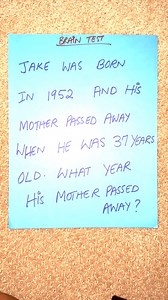 BRAIN TEST
JAKE WAS BORN
IN 1952 AND HIS
MOTHER PASSED AWAY
WHEN HE WAS 37 YEARS
OLD. WHAT YEAR
HIS MOTHER PASSED
AWAY?